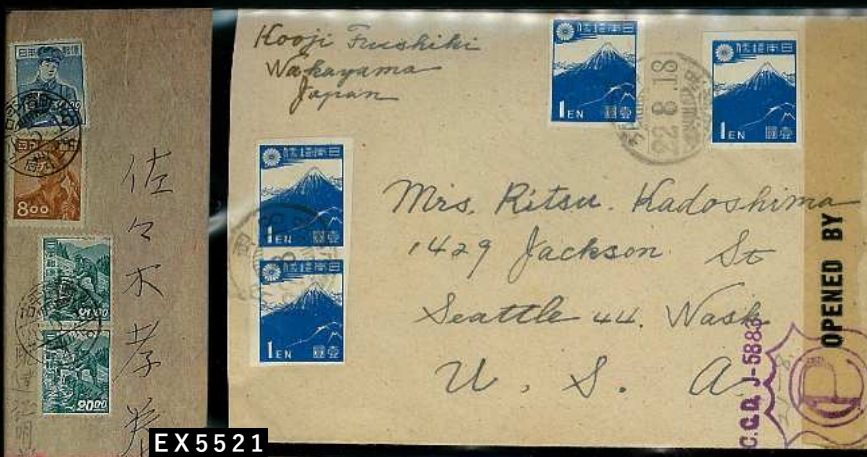 日本郵便
8.00
20.00
20.00
佐々木孝
Kooji Fushiki
Wakayama
Japan
日本郵便
1 EN 壹圓
日本郵便
1 EN 壹圓
22.8.18
日本郵便
1 EN 壹圓
日本郵便
1 EN 壹圓
Mrs. Ritsu. Kadoshima
1429 Jackson St
Seattle 44. Wash
U. S. A
OPENED BY
C.C.D. J-5883
P
EX5521